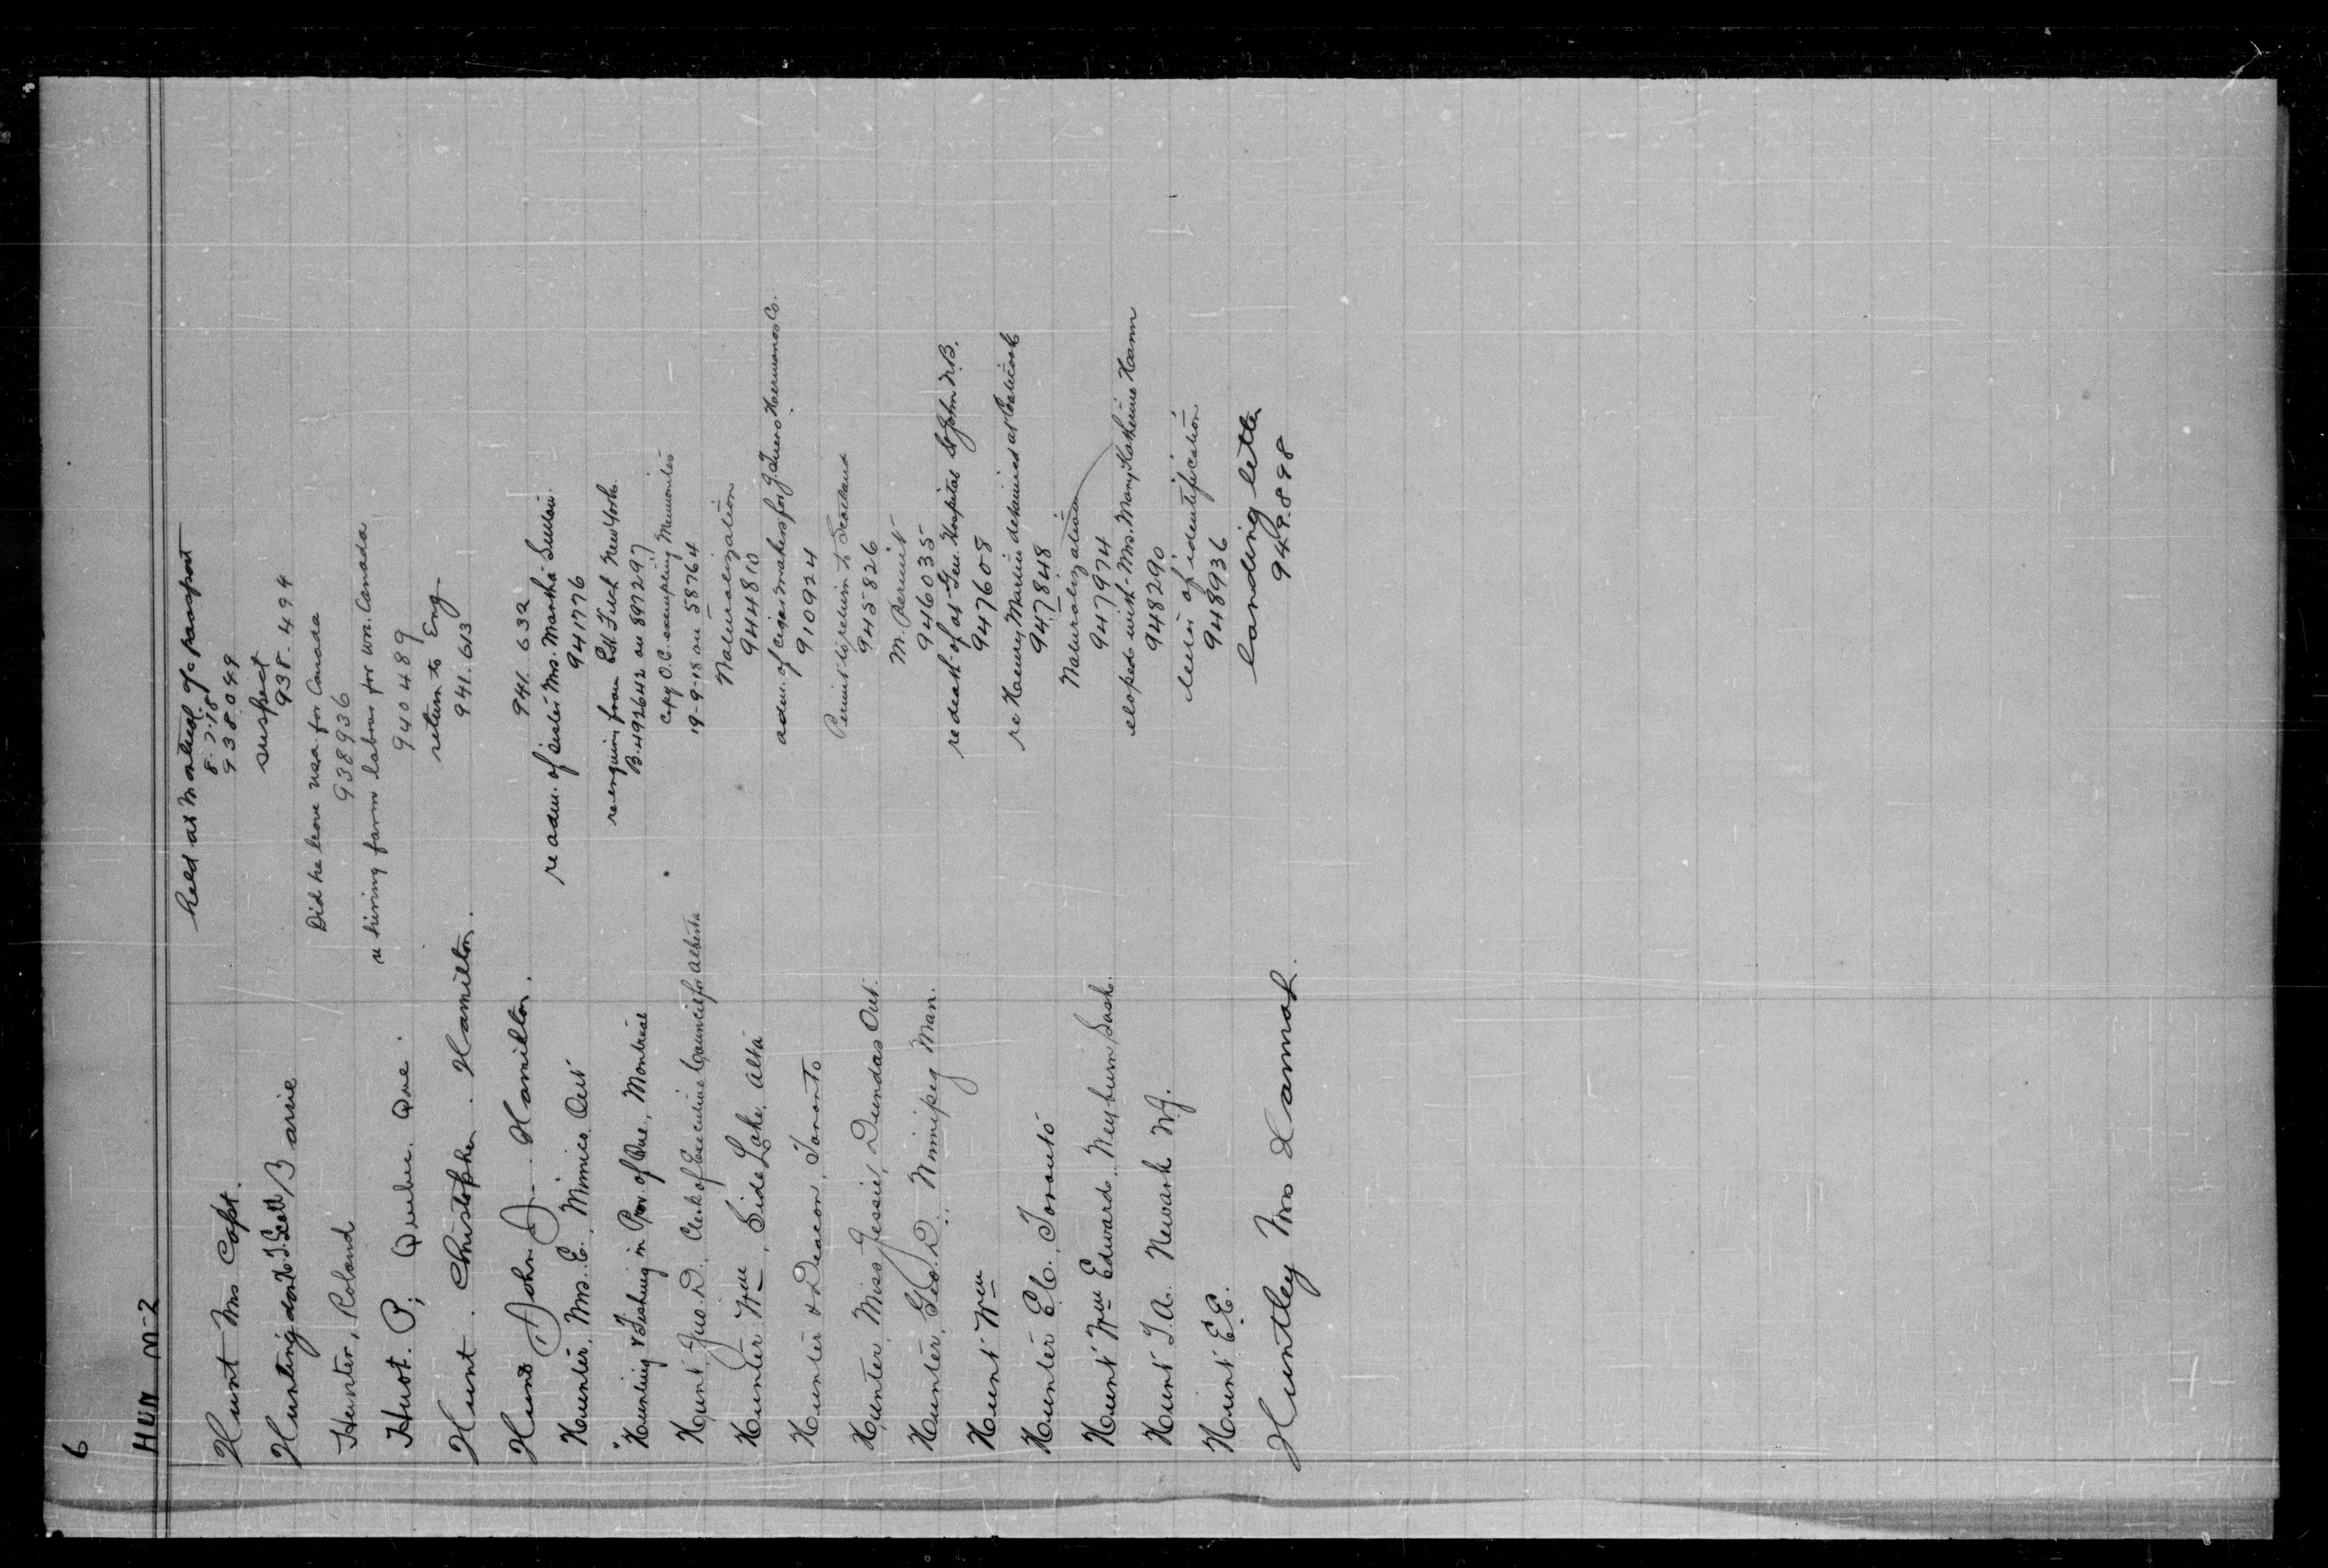 6
HUN M-2
Hunt Mrs Capt.
held at Montreal of passport
8-7-18
938049
Huntingdon H. T. Scott Barrie
suspect
938.494
Hunter, Roland
Did he leave usa for Canada
938936
Huot. P; Quebec. Que.
re hiring farm labour for wn. Canada
940489
Hunt. Christopher. Hamilton.
return to Eng
941.613
Hunt John J. Hamilton.
941.632
Hunter, Mrs. E. Mimico, Ont
re adm. of sister Mrs. Martha
941776
"Hunting & Fishing in Prov. of Que., Montreal
re enquiry from New York.
B.492642 on 897297
Hunt, Jno. D., Clerk of Executive Council for Alberta
Copy O.C. exempting Mennonites
19-9-18 on 58764
Hunter Wm, Side Lake, Alta
Naturalization
944810
Hunter & Deacon, Toronto
adm. of cigar makers for Hermanos Co.
910924
Hunter, Miss Jessie, Dundas Ont.
Permit to return to Scotland
945826
Hunter, Geo. D. Winnipeg Man.
M. Permit
946035
Hunt Wm
re death of at Gen. Hospital St John N.B.
947608
Hunter E.C. Toronto
re Henry Martin detained at Coaticook
947848
Hunt Wm Edward, Weyburn Sask.
Naturalization
947974
Hunt T.A. Newark N.J.
eloped with Mrs. Mary Katherine Hann
948290
Hunt E.E.
letter of identification
948936
Huntley Mrs Hannah.
landing letter
949.898